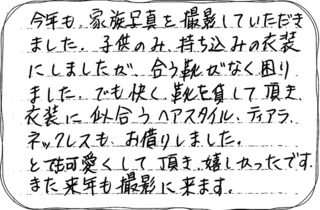 今年も、家族写真を撮影していただき
ました。子供のみ、持ち込みの衣装
にしましたが、合う靴がなく困り
ました。でも快く、靴を貸して頂き、
衣装に似合うヘアスタイル、ティアラ、
ネックレスも、お借りしました。
とても可愛くして頂き、嬉しかったです。
また来年も撮影に来ます。